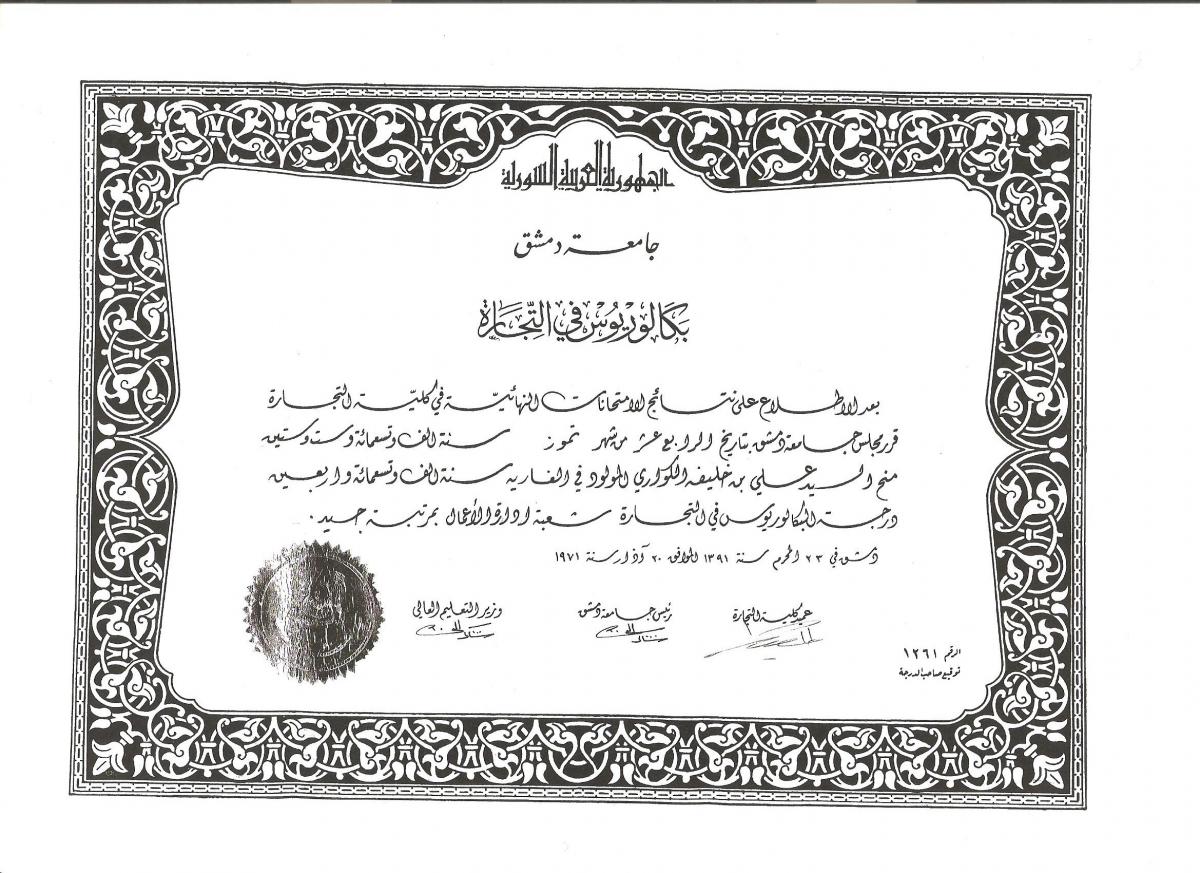 الجمهورية العربية السورية
جامعة دمشق
بَكالوريُوس في التِّجَارَة
بعد الاطلاع على نتائج الامتحانات النهائيّة في كليّة التجارة
قرر مجلس جامعة دمشق بتاريخ الرابع عشر من شهر تموز سنة الف وتسعمائة وست وستين
منح السيد علي بن خليفه الكواري المولود في الغاريه سنة الف وتسعمائة واربعين
درجة البكالوريوس في التجارة شعبة ادارة الأعمال بمرتبة جيد.
دمشق في ٢٣ المحرم سنة ١٣٩١ الموافق ٢٠ آذار سنة ١٩٧١
عميد كلية التجارة رئيس جامعة دمشق وزير التعليم العالي
الرقم ١٢٦١
توقيع صاحب الدرجة